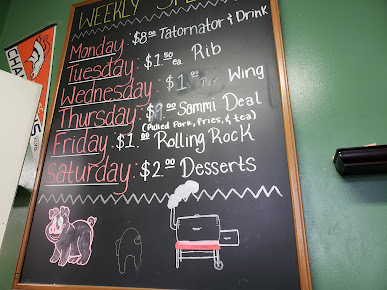 WEEKLY
Monday: $8.00 Tatornator & Drink
Tuesday: $1.50 ea. Rib
Wednesday: $1 Wing
Thursday: $9.00 Sammi Deal
(Pulled Pork, fries, & tea)
Friday: $1.00 Rolling Rock
Saturday: $2.00 Desserts